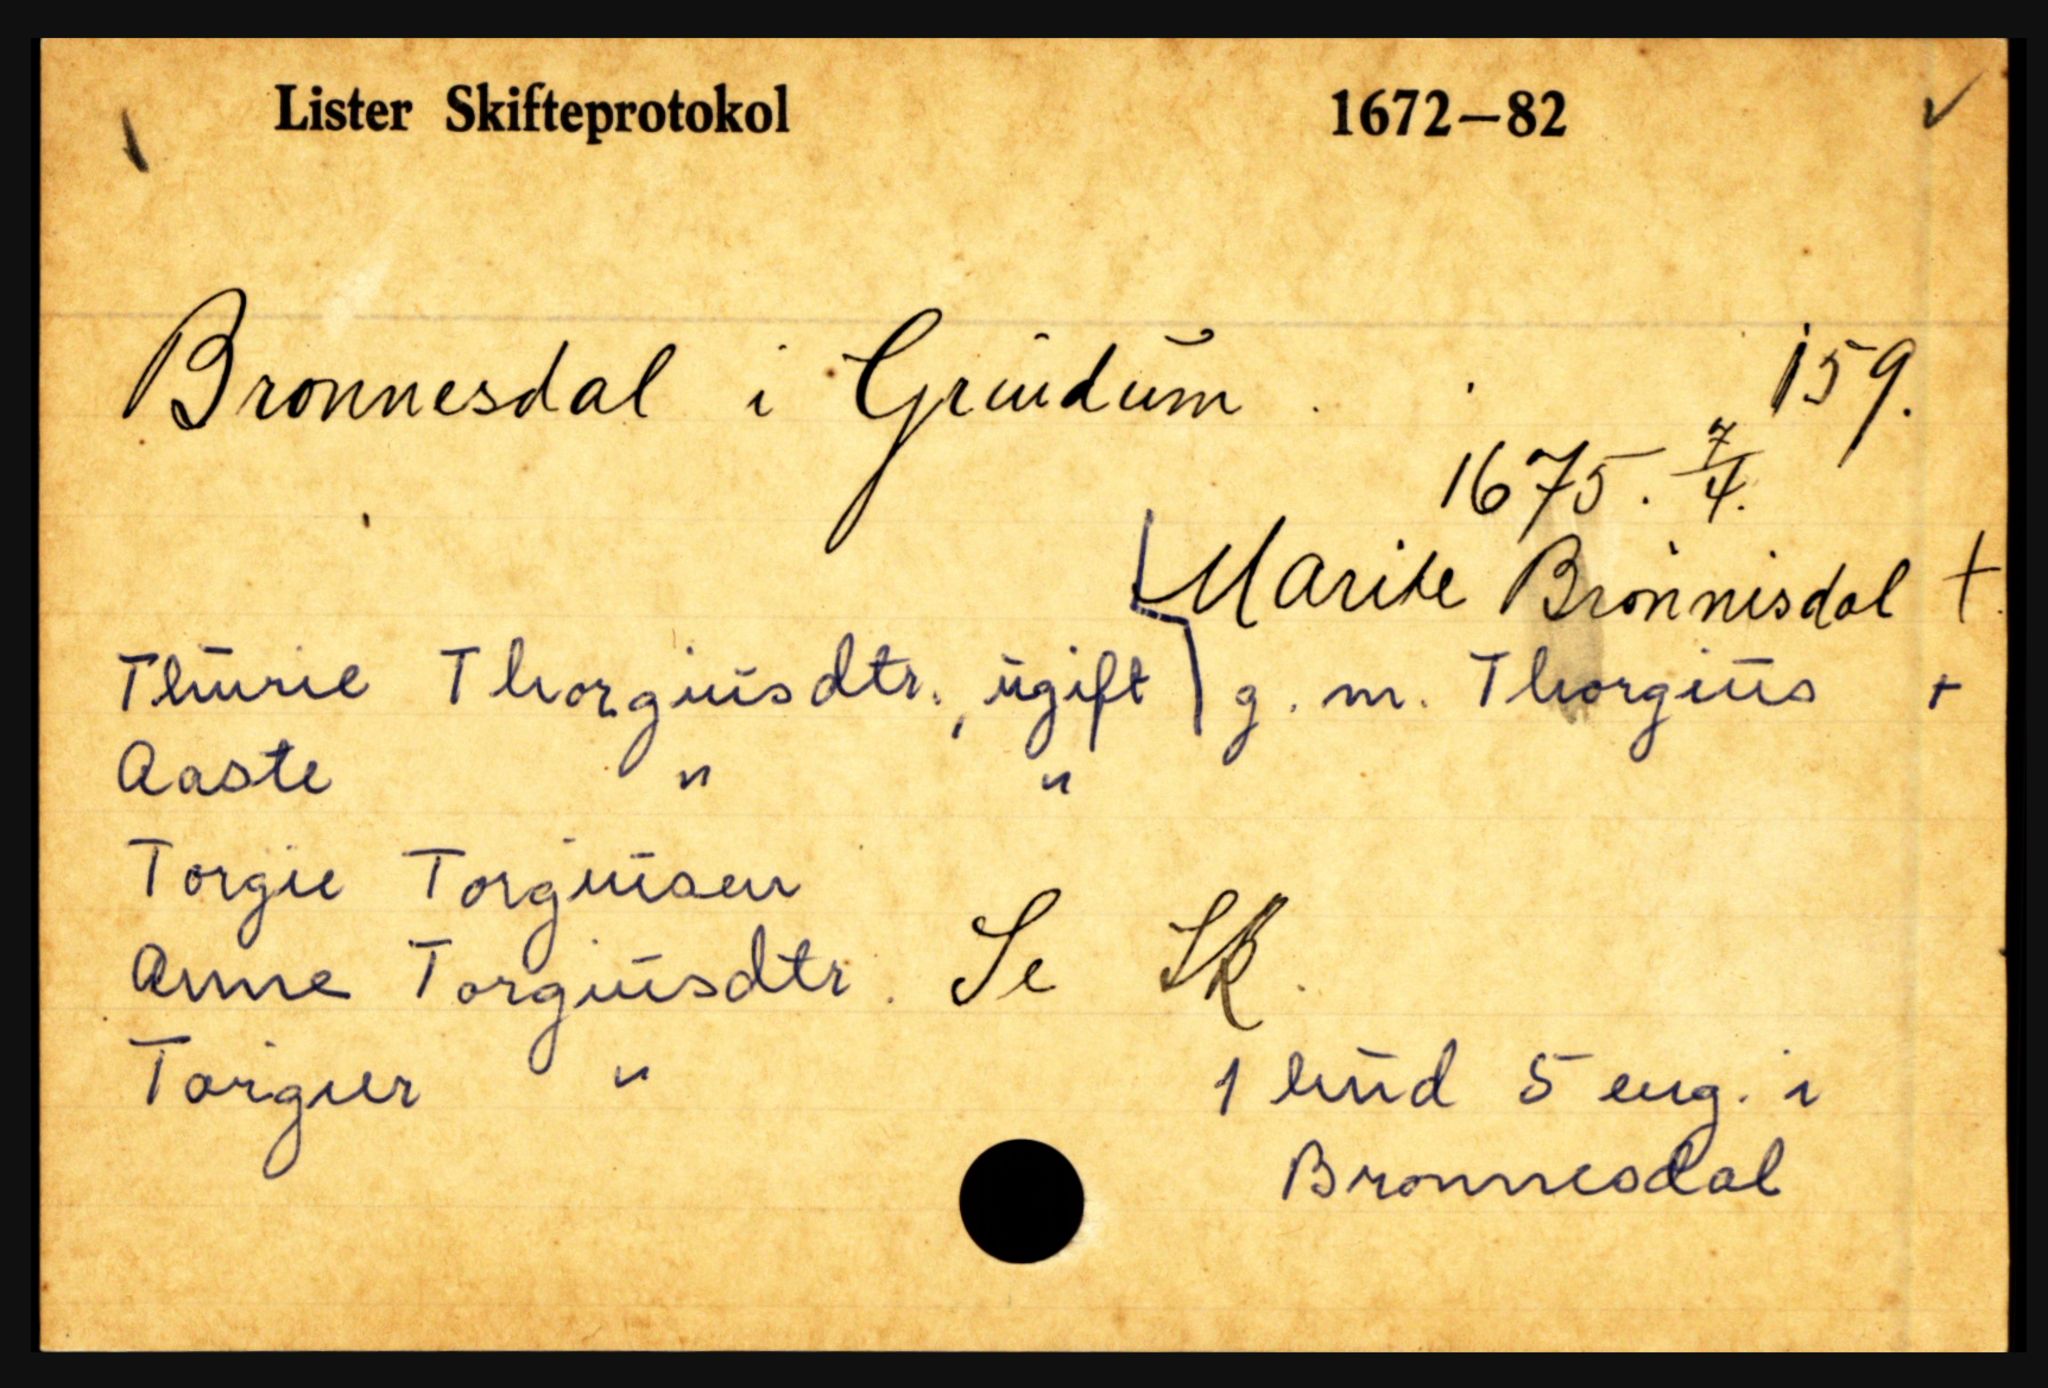 Lister Skifteprotokol 1672—82
Bronnesdal i Grindum. 159.
1675. 7/4.
Marite Brönnisdal +
Thurie Thorgiusdtr., ugift g. m. Thorgius +
Aaste " "
Torgie Torgiusen
Anne Torgiusdtr. Se Sk.
Torgier " 1 hud 5 eng. i
Bronnesdal